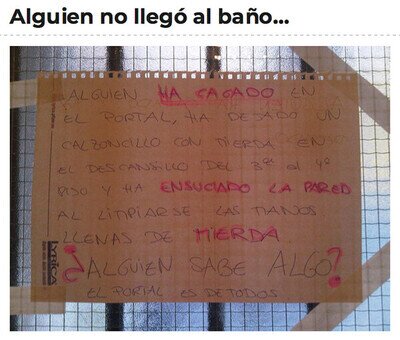 Alguien no llegó al baño...
ALGUIEN HA CAGADO EN
EL PORTAL, HA DEJADO UN
CALZONCILLO CON MIERDA EN
EL DESCANSILLO DEL 3er al 4º
PISO Y HA ENSUCIADO LA PARED
AL LIMPIARSE LAS MANOS
LLENAS DE MIERDA.
¿ALGUIEN SABE ALGO?
EL PORTAL ES DE TODOS